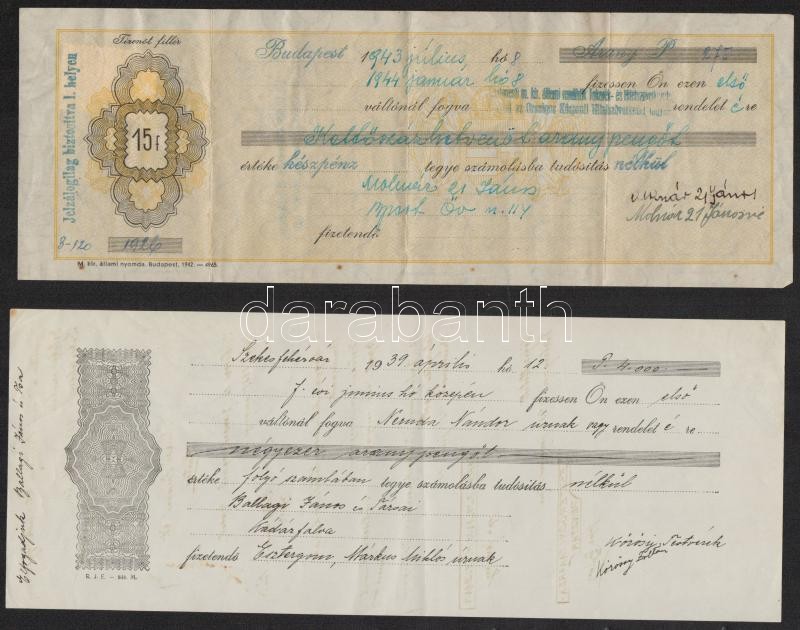 Tizenöt fillér
Budapest 1943 július hó 8 Arany P 275
1944 január hó 8 fizessen Ön ezen első
váltónál fogva rendelet é re
Kettőszázhetvenöt aranypengőt
értéke készpénz tegye számolásba tudósítás nélkül
Molnár 21 János
Molnár 21 János
Molnár 21 Jánosné
fizetendő
Jelzálogilag biztosítva I. helyen
15 f
8-120 1926
M. kir. állami nyomda. Budapest, 1942. — 4965.
darabanth
Székesfehérvár 1939 április hó 12. P. 4.000
F. évi junius hó közepén fizessen Ön ezen első
váltónál fogva Neruda Nándor úrnak vagy rendelet é re
négyezer aranypengőt
értéke folyó számlában tegye számolásba tudósítás nélkül
Ballagi János és Társai
Kádárfalva
fizetendő Esztergom, Markus Miklós úrnak
Kőrösy Testvérek
Kőrösy Zoltán
Elfogadjuk Ballagi János és Tsa
R. J. E.